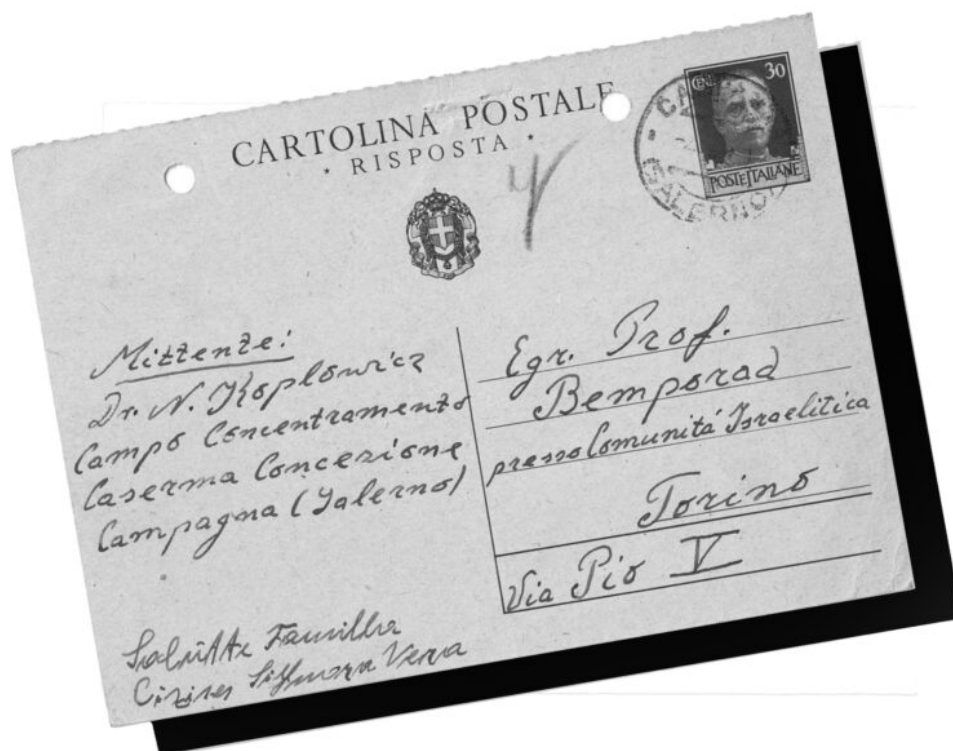 CARTOLINA POSTALE
RISPOSTA
CENT. 30
POSTE ITALIANE
SALERNO
Mittente:
Dr. N. Koplowicz
Campo Concentramento
Caserma Concezione
Campagna (Salerno)
Egr. Prof.
Bemporad
presso Comunitá Israelitica
Torino
Via Pio V
Vera